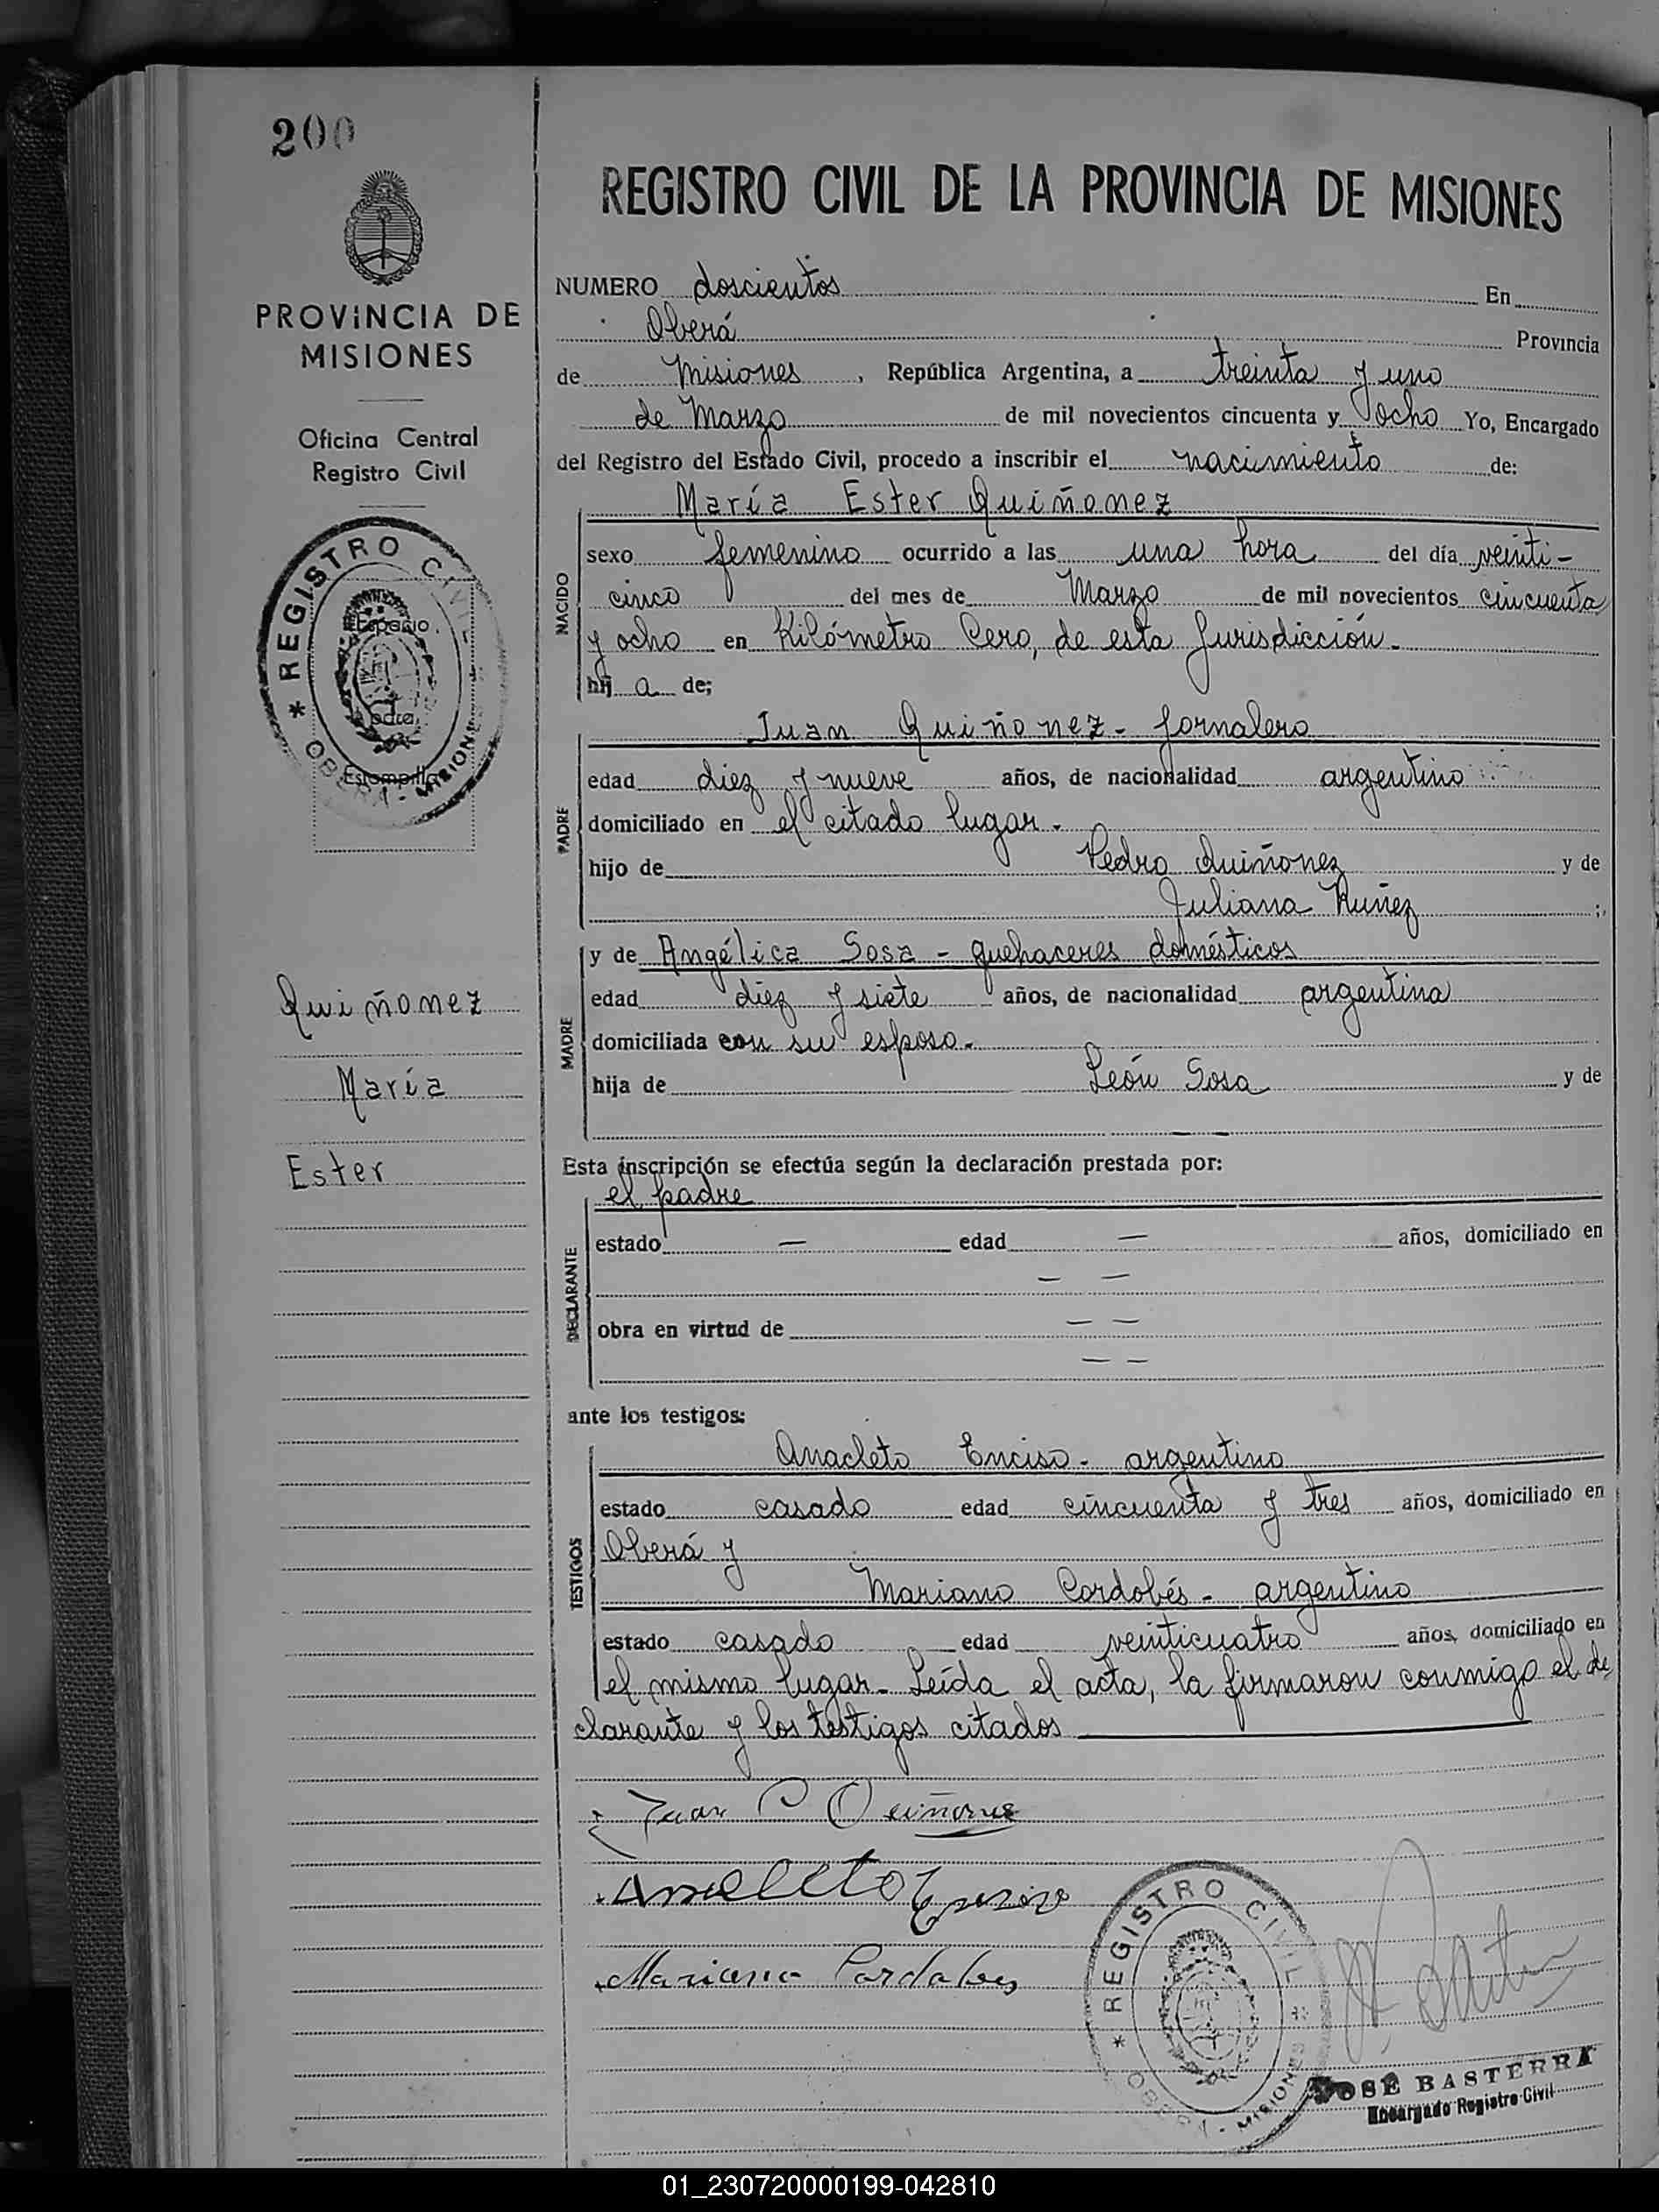 200
PROVINCIA DE
MISIONES
Oficina Central
Registro Civil
REGISTRO CIVIL
OBERA - MISIONES
Espacio
para
Estampilla
Quiñonez
María
Ester
REGISTRO CIVIL DE LA PROVINCIA DE MISIONES
NUMERO doscientos En
Oberá Provincia
de Misiones, República Argentina, a treinta y uno
de Marzo de mil novecientos cincuenta y ocho Yo, Encargado
del Registro del Estado Civil, procedo a inscribir el nacimiento de:
María Ester Quiñonez
NACIDO
sexo femenino ocurrido a las una hora del día veinti-
cinco del mes de Marzo de mil novecientos cincuenta
y ocho en Kilómetro Cero, de esta Jurisdicción.
hij a de;
PADRE
Juan Quiñonez - Jornalero
edad diez y nueve años, de nacionalidad argentino
domiciliado en el citado lugar.
hijo de Pedro Quiñonez y de
Juliana Nuñez ;
MADRE
y de Angélica Sosa - quehaceres domésticos
edad diez y siete años, de nacionalidad argentina
domiciliada con su esposo.
hija de León Sosa y de
— —
Esta inscripción se efectúa según la declaración prestada por:
el padre
DECLARANTE
estado — edad — años, domiciliado en
— —
obra en virtud de — —
— —
ante los testigos:
TESTIGOS
Anacleto Enciso - argentino
estado casado edad cincuenta y tres años, domiciliado en
Oberá y
Mariano Cordobés - argentino
estado casado edad veinticuatro años, domiciliado en
el mismo lugar. Leída el acta, la firmaron conmigo el de
clarante y los testigos citados
Juan P Quiñones
Anacleto Enciso
Mariano Cordobes
REGISTRO CIVIL
OBERA - MISIONES
JOSÉ BASTERRA
Encargado Registro Civil
01_230720000199-042810